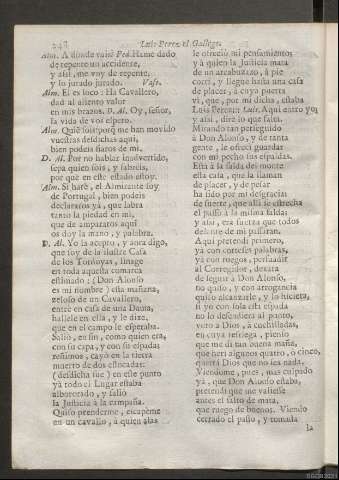 248 Luis Perez el Gallego.
Alm. A donde vais? Ped. Hame dado
de repente un accidente,
y assi, me voy de repente,
y lo jurado jurado. Vase.
Alm. El es loco: Ha Cavallero,
dad al aliento valor
en mis brazos. D. Al. Oy, señor,
la vida de vos espero.
Alm. Quie sois? porq̃ me han movido
vuestras desdichas aqui,
bien podeis fiaros de mi.
D. Al. Por no hablar inadvertido,
sepa quien sois, y sabreis,
por què en este estado estoy.
Alm. Si harè, el Almirante soy
de Portugal, bien podeis
declararos yà, que labra
tanto la piedad en mi,
que de ampararos aqui
os doy la mano, y palabra.
D. Al. Yo la acepto, y aora digo,
que soy de la ilustre Casa
de los Tordoyas, linage
en toda aquesta comarca
estimado: (Don Alonso
es mi nombre) esta mañana,
zeloso de un Cavallero,
entrè en casa de una Dama,
hallele en ella, y le dixe,
que en el campo le esperaba.
Saliò, en fin, como quien era,
con su capa, y con su espada:
reñimos, cayò en la tierra
muerto de dos estocadas:
(desdicha fue) en este punto
yà todo el Lugar estaba
alborotado, y saliò
la Justicia à la campaña.
Quiso prenderme, escapème
en un cavallo, à quien alas
le ofreciò mi pensamiento;
y à quien la Justicia mata
de un arcabuzazo, à pie
corrì, y lleguè hasta una casa
de placer, à cuya puerta
vi, que, por mi dicha, estaba
Luis Perez: Luis. Aqui entro yo;
y assi, dirè lo que falta.
Mirando tan perseguido
à Don Alonso, y de tanta
gente, le ofrecì guardar
con mi pecho sus espaldas.
Està à la salida del monte
esta casa, que la llaman
de placer, y de pesar
ha sido por mi desgracia:
de suerte, que alli se estrecha
el passo à la misma falda;
y assi, era fuerza que todos
delante de mi passaran.
Aqui pretendì primero,
yà con corteses palabras,
yà con ruegos, persuadir
al Corregidor, dexara
de seguir à Don Alonso,
no quiso, y con arrogancia
quiso alcanzarle, y lo hiciera,
si yo con sola esta espada
no lo defendiera al punto,
voto à Dios, à cuchilladas,
en cuya refriega, pienso
que me di tan buena maña,
que herì algunos quatro, ò cinco,
querrà Dios que no sea nada.
Viendome, pues, mas culpado
yà, que Don Alonso estaba,
pretendì que me valiesse
antes el salto de mata,
que ruego de buenos. Viendo
cerrado el passo, y tomada
la